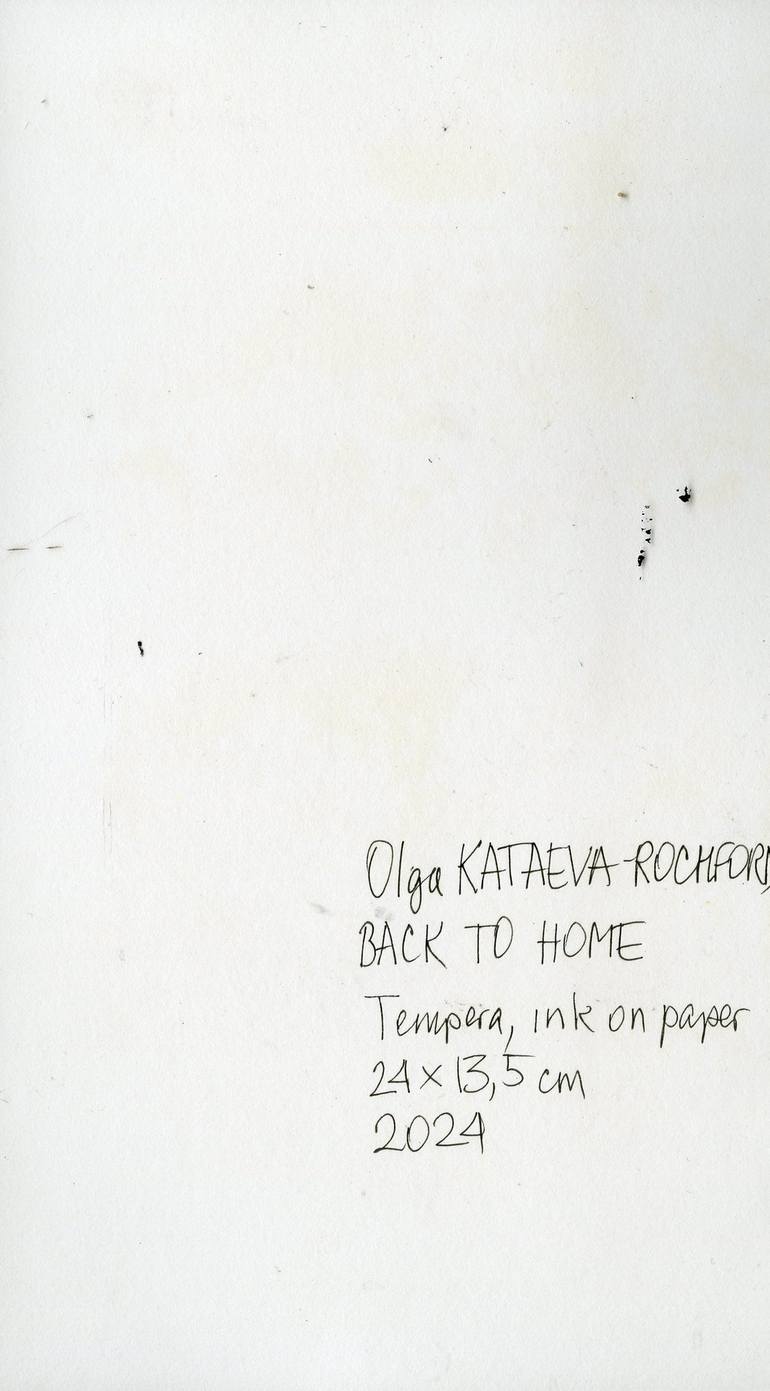 Olga KATAEVA-ROCHFORD
BACK TO HOME
Tempera, ink on paper
24 x 13,5 cm
2024